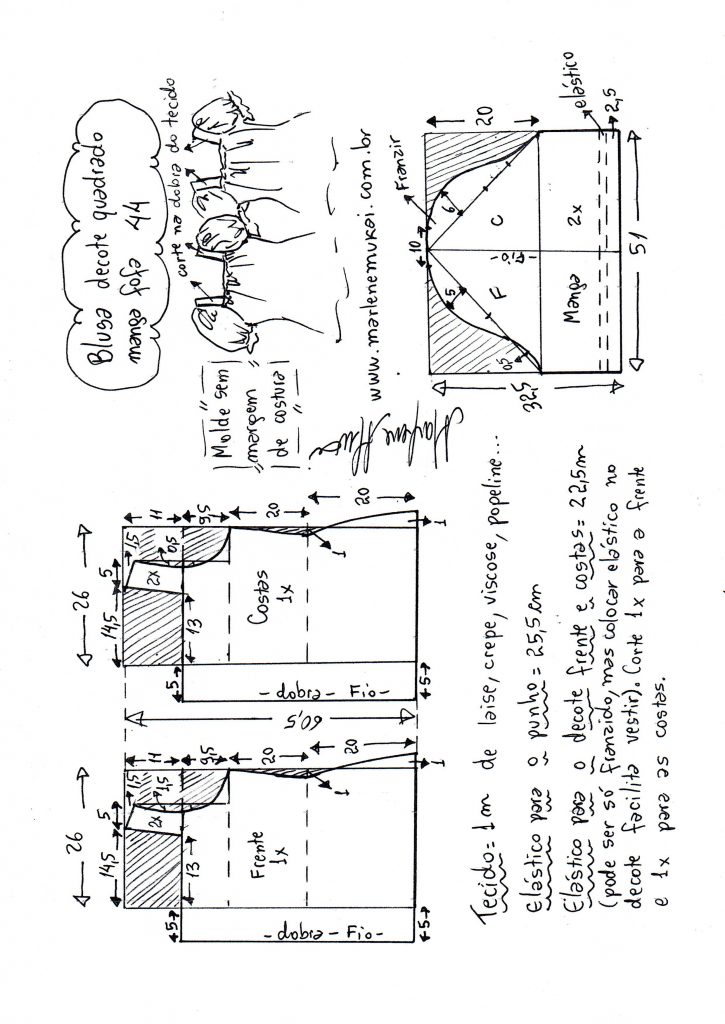 Blusa decote quadrado
manga fofa 44
corte na dobra do tecido
www.marlenemukai.com.br
Molde sem
margem
de costura
26
14,5
5
1,5
11
2x
1,5
9,5
13
5
Frente
1x
20
1
20
1
5
- dobra - Fio -
60,5
26
14,5
5
1,5
11
2x
0,5
9,5
13
5
Costas
1x
20
1
20
1
5
- dobra - Fio -
Franzir
10
20
6
5
0,5
F
C
- Fio -
Manga
2x
32,5
51
elástico
2,5
Tecido = 1 m de laise, crepe, viscose, popeline...
Elástico para o punho = 25,5 cm
Elástico para o decote frente e costas = 22,5 m
(pode ser só franzido, mas colocar elástico no
decote facilita vestir). Corte 1x para a frente
e 1x para as costas.